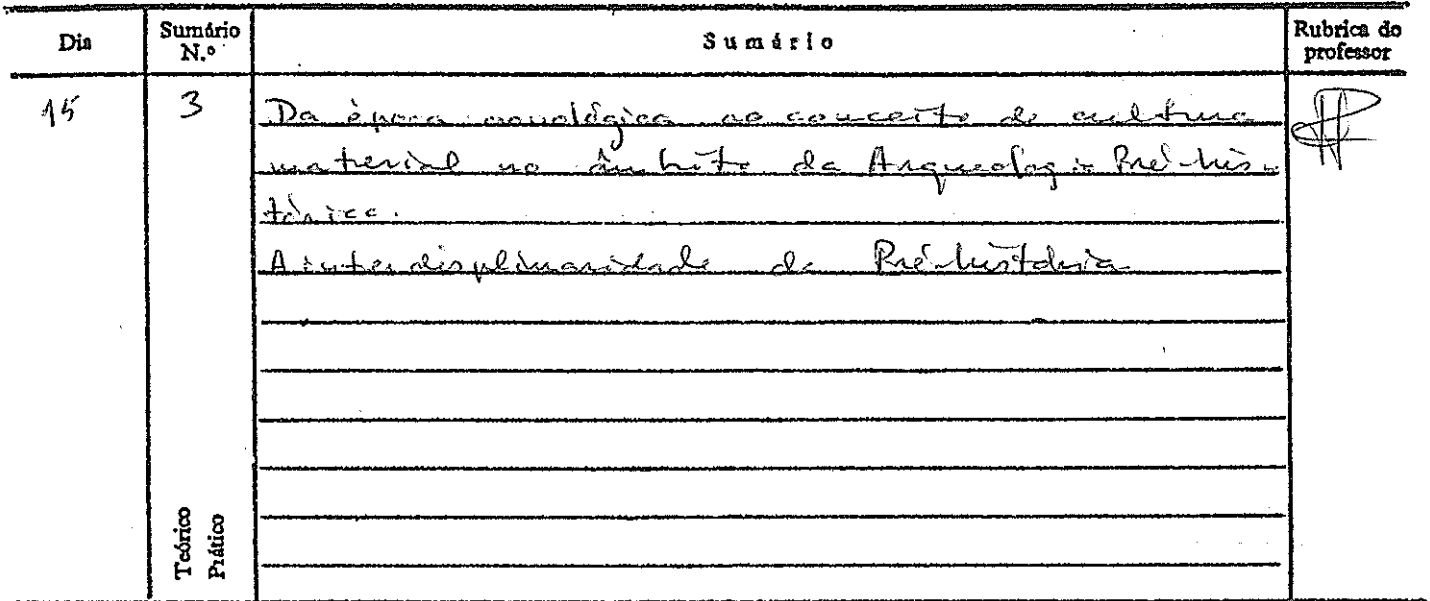 Dia
Sumário N.º
Sumário
Rubrica do professor
15
3
Da época ao conceito de cultura
material no âmbito da Arqueologia Pré-his-
tórica.
A interdisplinaridade da Pré-história
Teórico
Prático